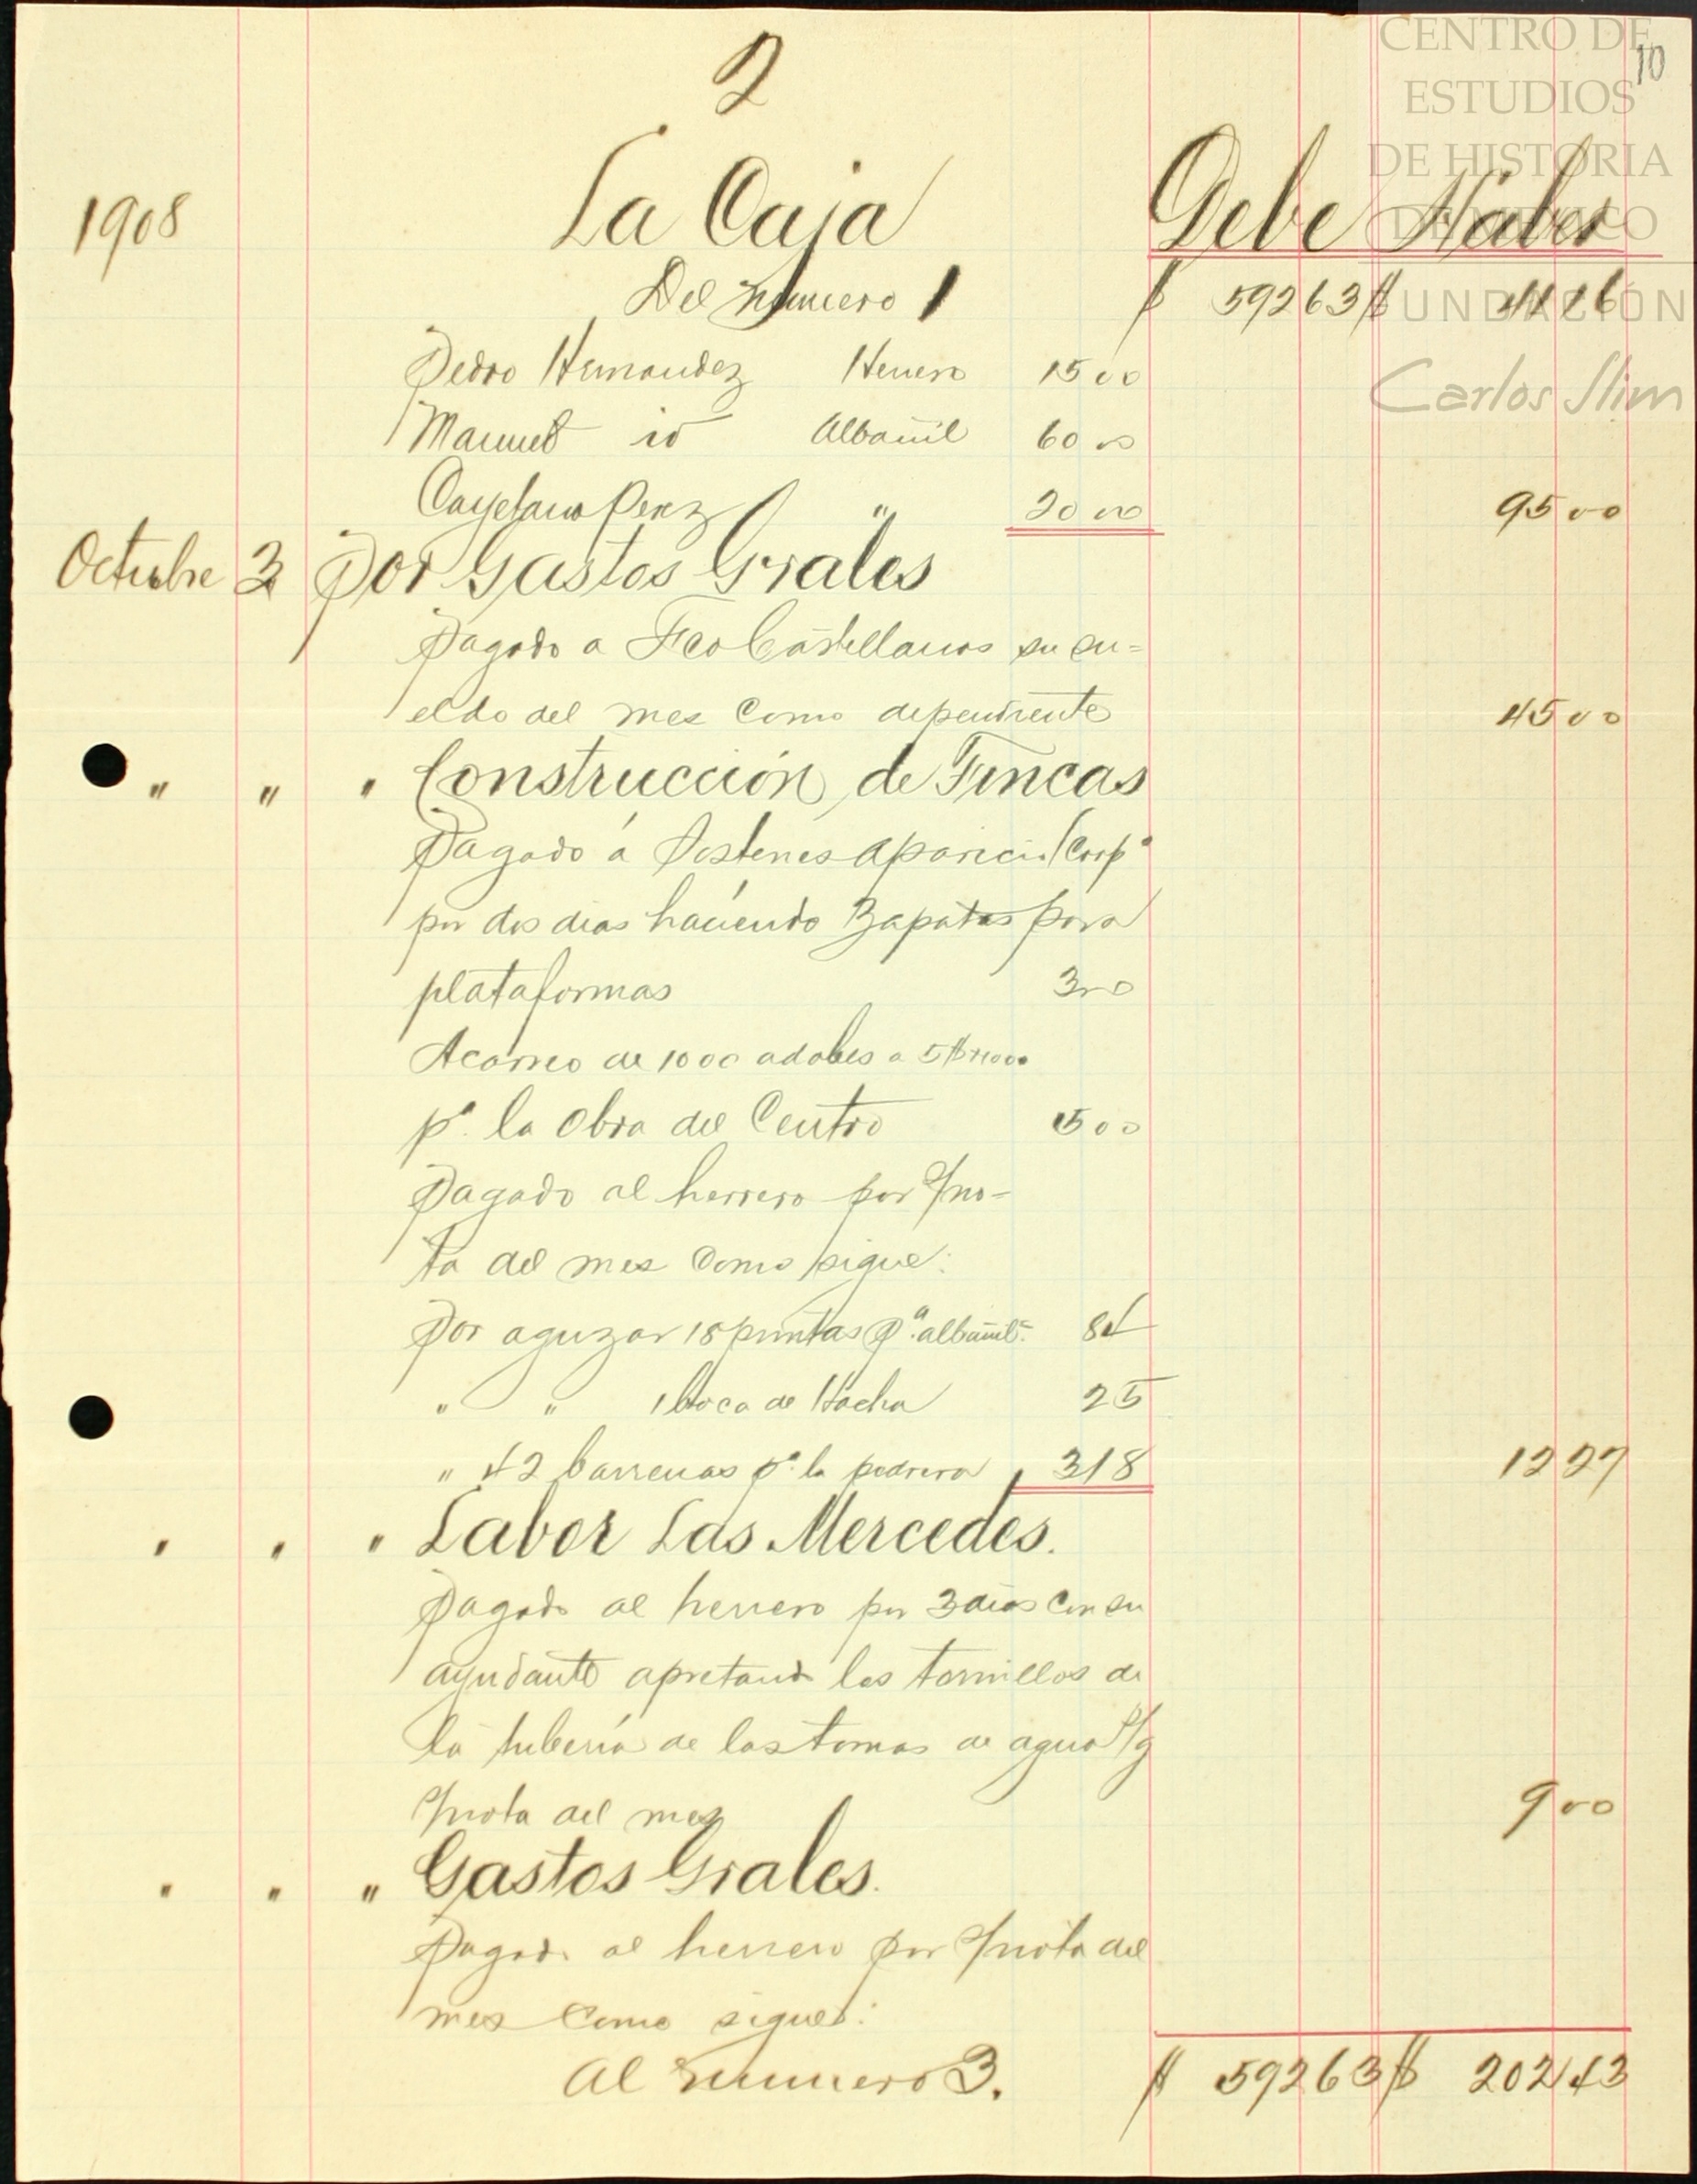 CENTRO DE
ESTUDIOS
DE HISTORIA
DE MÉXICO
FUNDACIÓN
Carlos Slim
10
2
1908 La Caja Debe Haber
Del numero 1 $ 592 63 $ 41 16
Pedro Hernandez Herrero 15 00
Manuel id Albañil 60 00
Cayetano Perez " 20 00 95 00
Octubre 3 Por Gastos Grales
Pagado a Fco Castellanos su su=
eldo del mes como dependiente 45 00
" " " Construcción de Fincas
Pagado á Sostenes Aparicio Carpº
por dos dias haciendo Zapatas para
plataformas 3 00
Acarreo de 1000 adobes a 5$ 1000
pª. la obra del Centro 5 00
Pagado al herrero por s/no=
ta del mes como sigue:
Por aguzar 18 puntas pª. albañil. 84
" " 1 boca de Hacha 25
" 42 barrenas pª. la pedrera, 3 18 12 27
" " " Labor Las Mercedes.
Pagado al herrero por 3 dias con su
ayudante apretando los tornillos de
la tuberia de las tomas de agua s/g
s/nota del mes 9 00
" " " Gastos Grales.
Pagado al herrero por s/nota del
mes como sigue:
Al numero 3. $ 592 63 $ 202 43